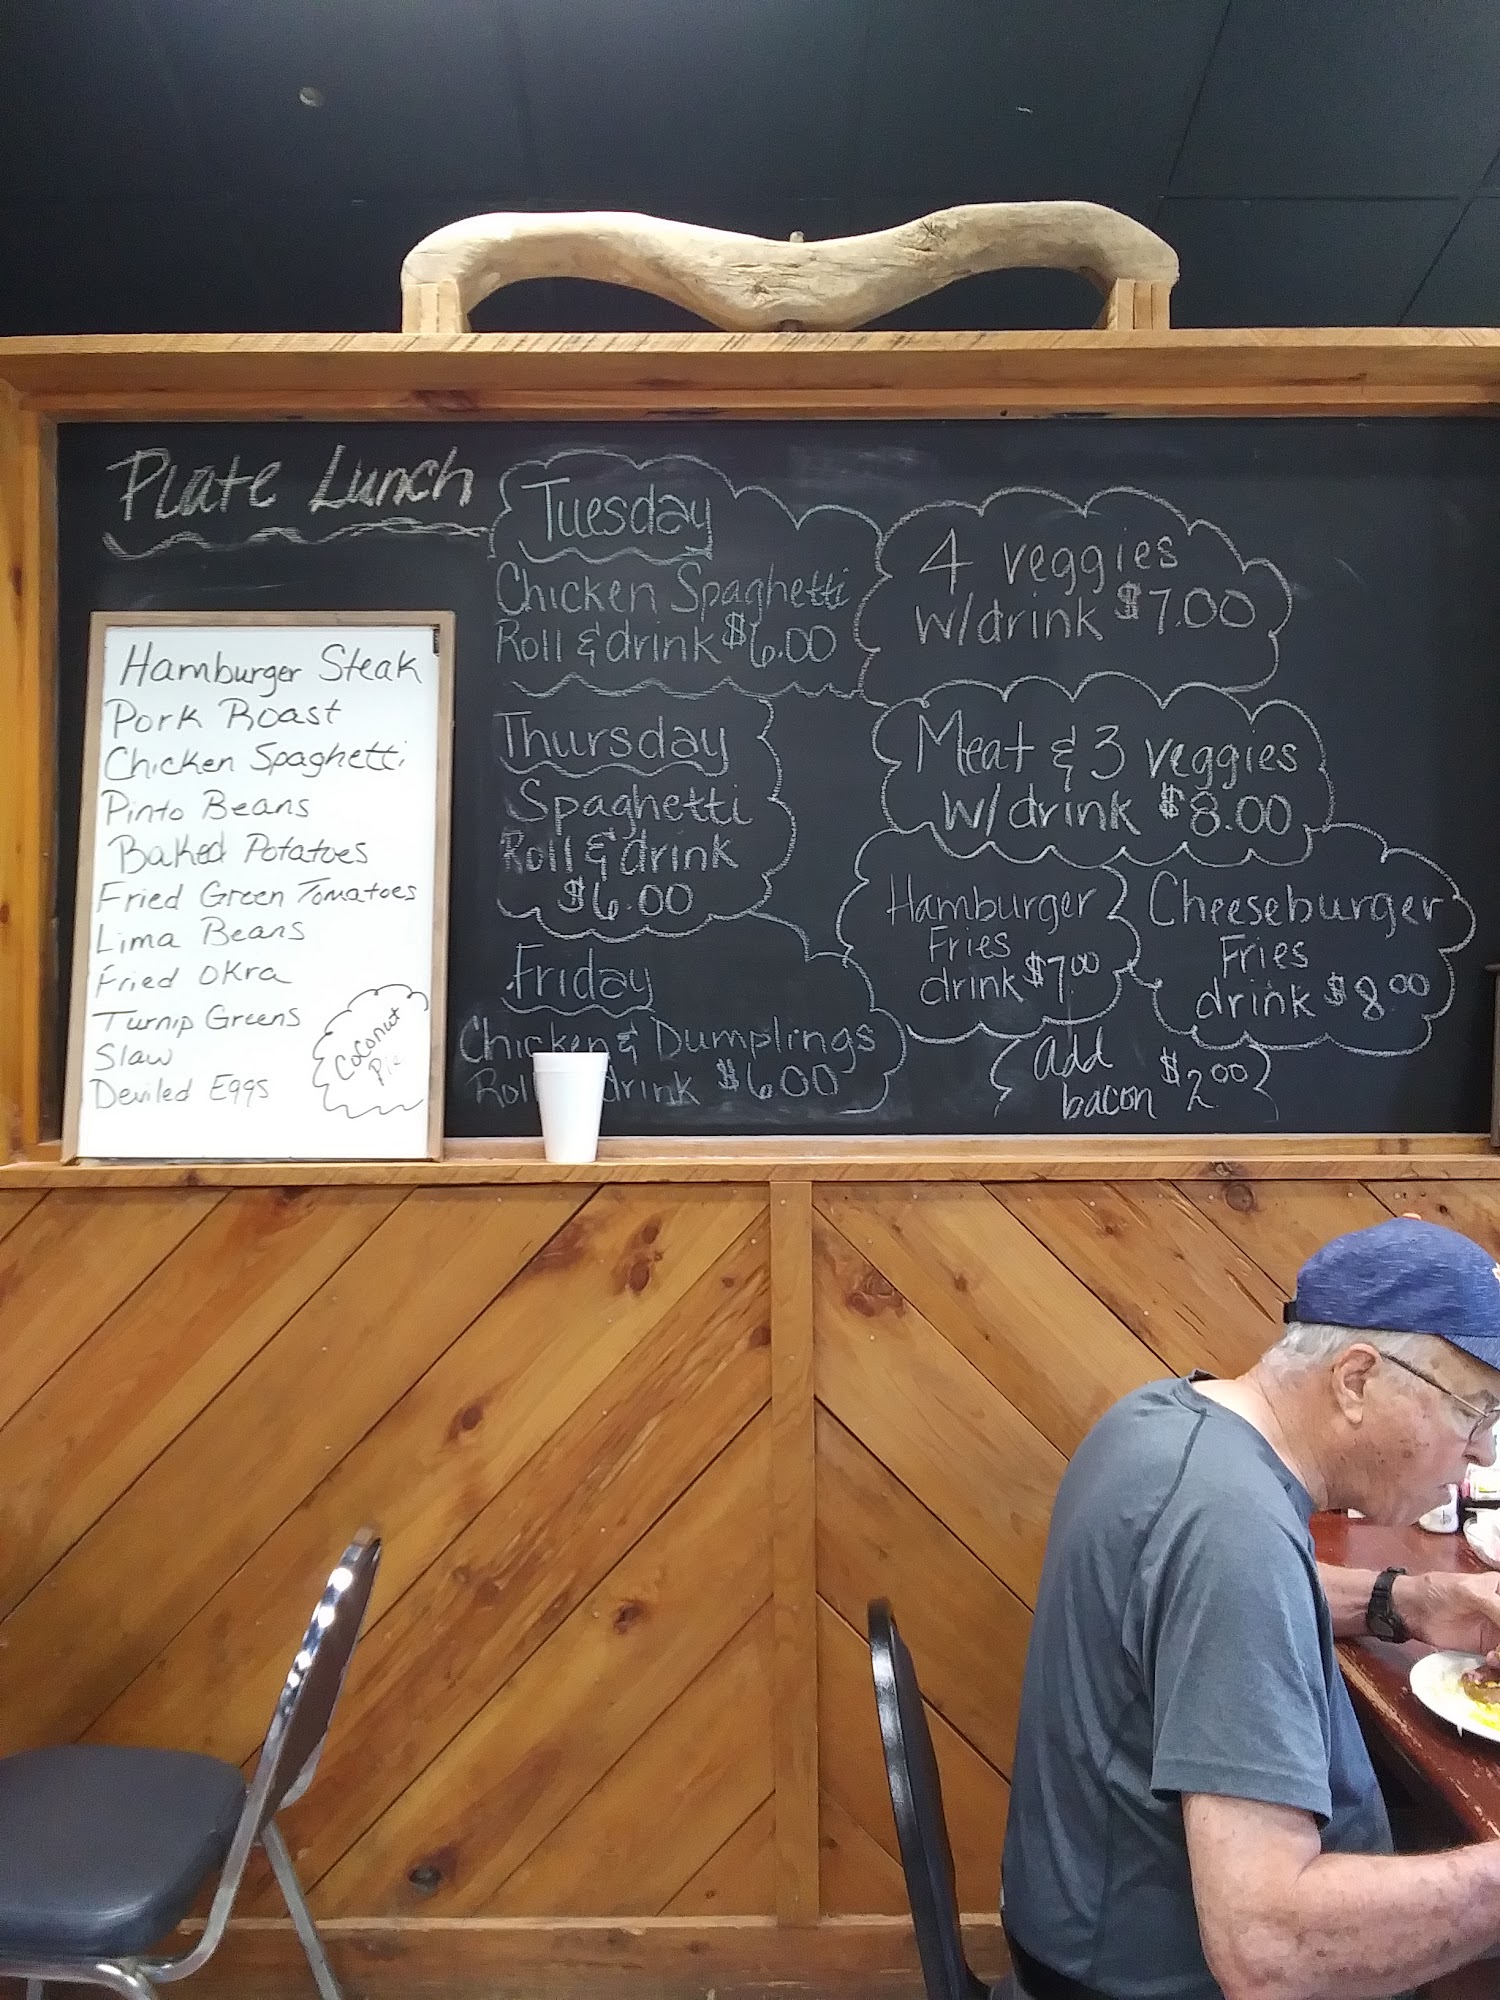 Plate Lunch
Hamburger Steak
Pork Roast
Chicken Spaghetti
Pinto Beans
Baked Potatoes
Fried Green Tomatoes
Lima Beans
Fried Okra
Turnip Greens
Slaw
Deviled Eggs
Coconut
Pie
Tuesday
Chicken Spaghetti
Roll & drink $6.00
Thursday
Spaghetti
Roll & drink
$6.00
Friday
Chicken & Dumplings
Roll drink $6.00
4 veggies
w/drink $7.00
Meat & 3 veggies
w/drink $8.00
Hamburger
Fries
drink $7.00
Cheeseburger
Fries
drink $8.00
add
bacon $2.00